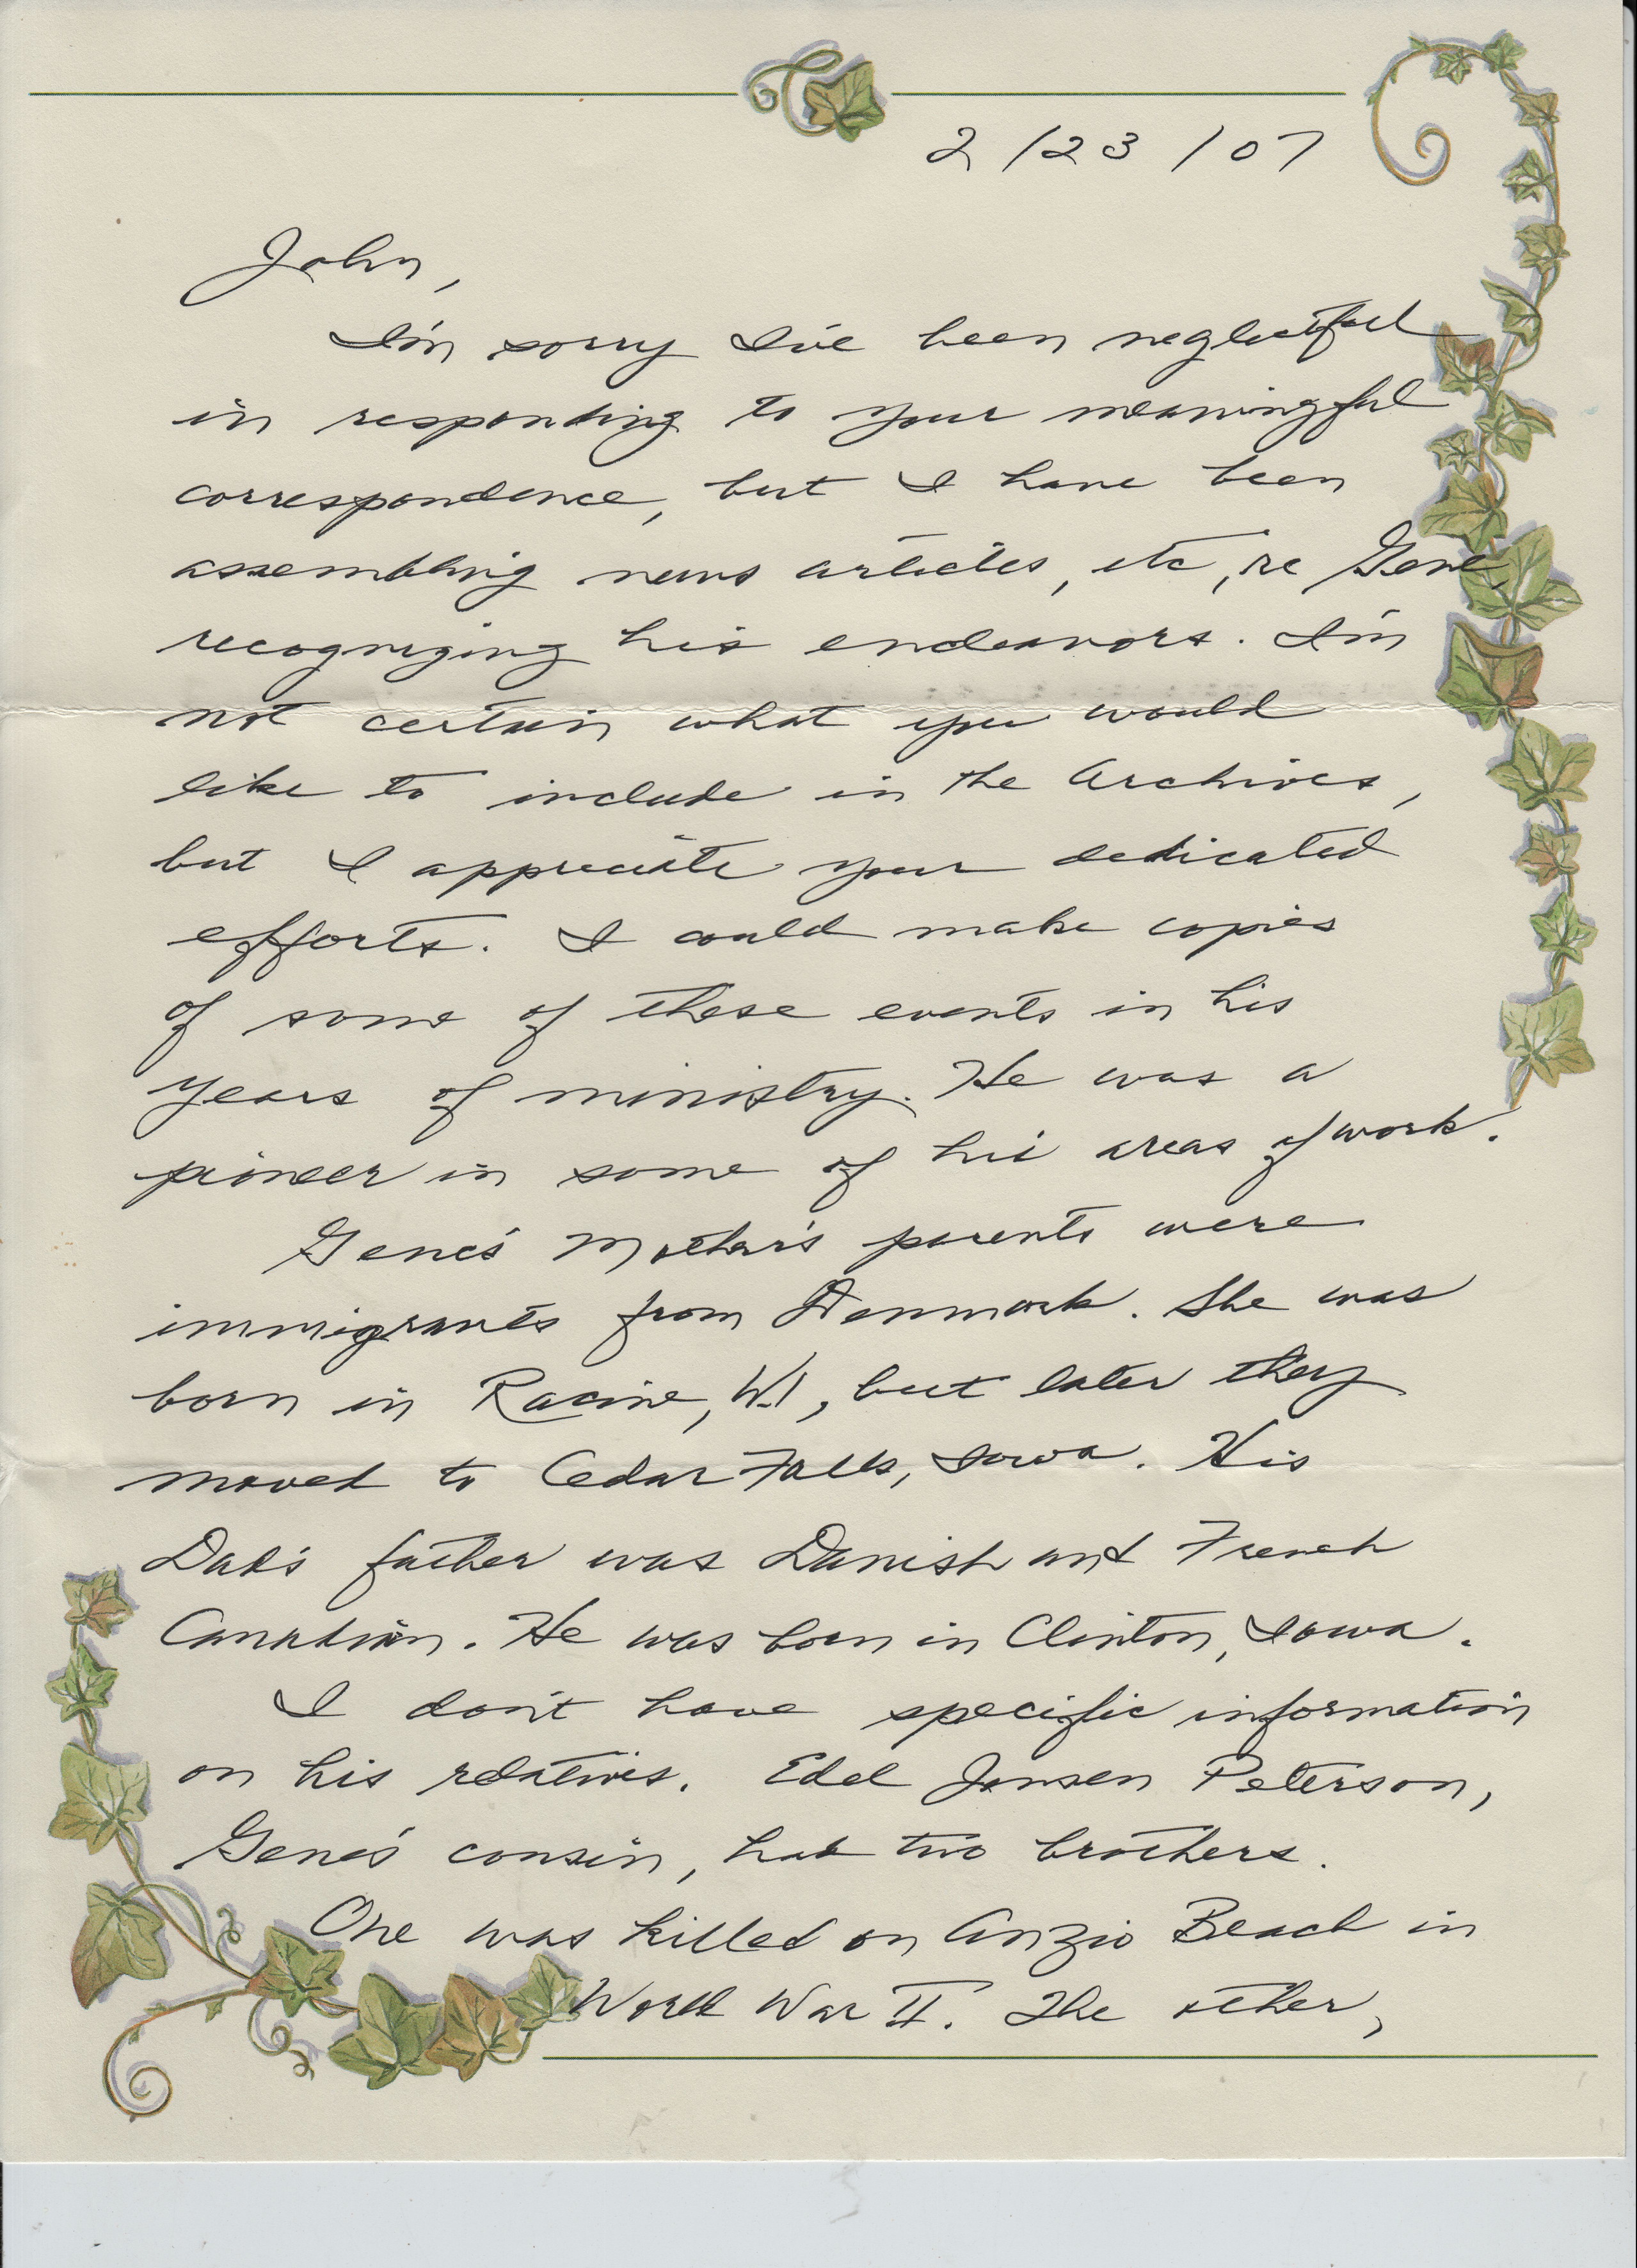 2/23/07
John,
I'm sorry I've been neglectful
in responding to your meaningful
correspondence, but I have been
assembling news articles, etc, re Gene,
recognizing his endeavors. I'm
not certain what you would
like to include in the Archives,
but I appreciate your dedicated
efforts. I could make copies
of some of these events in his
years of ministry. He was a
pioneer in some of his areas of work.
Gene's Mother's parents were
immigrants from Denmark. She was
born in Racine, WI, but later they
moved to Cedar Falls, Iowa. His
Dad's father was Danish and French
Canadian. He was born in Clinton, Iowa.
I don't have specific information
on his relatives. Edel Jensen Peterson,
Gene's cousin, had two brothers.
One was killed on Anzio Beach in
World War II. The other,